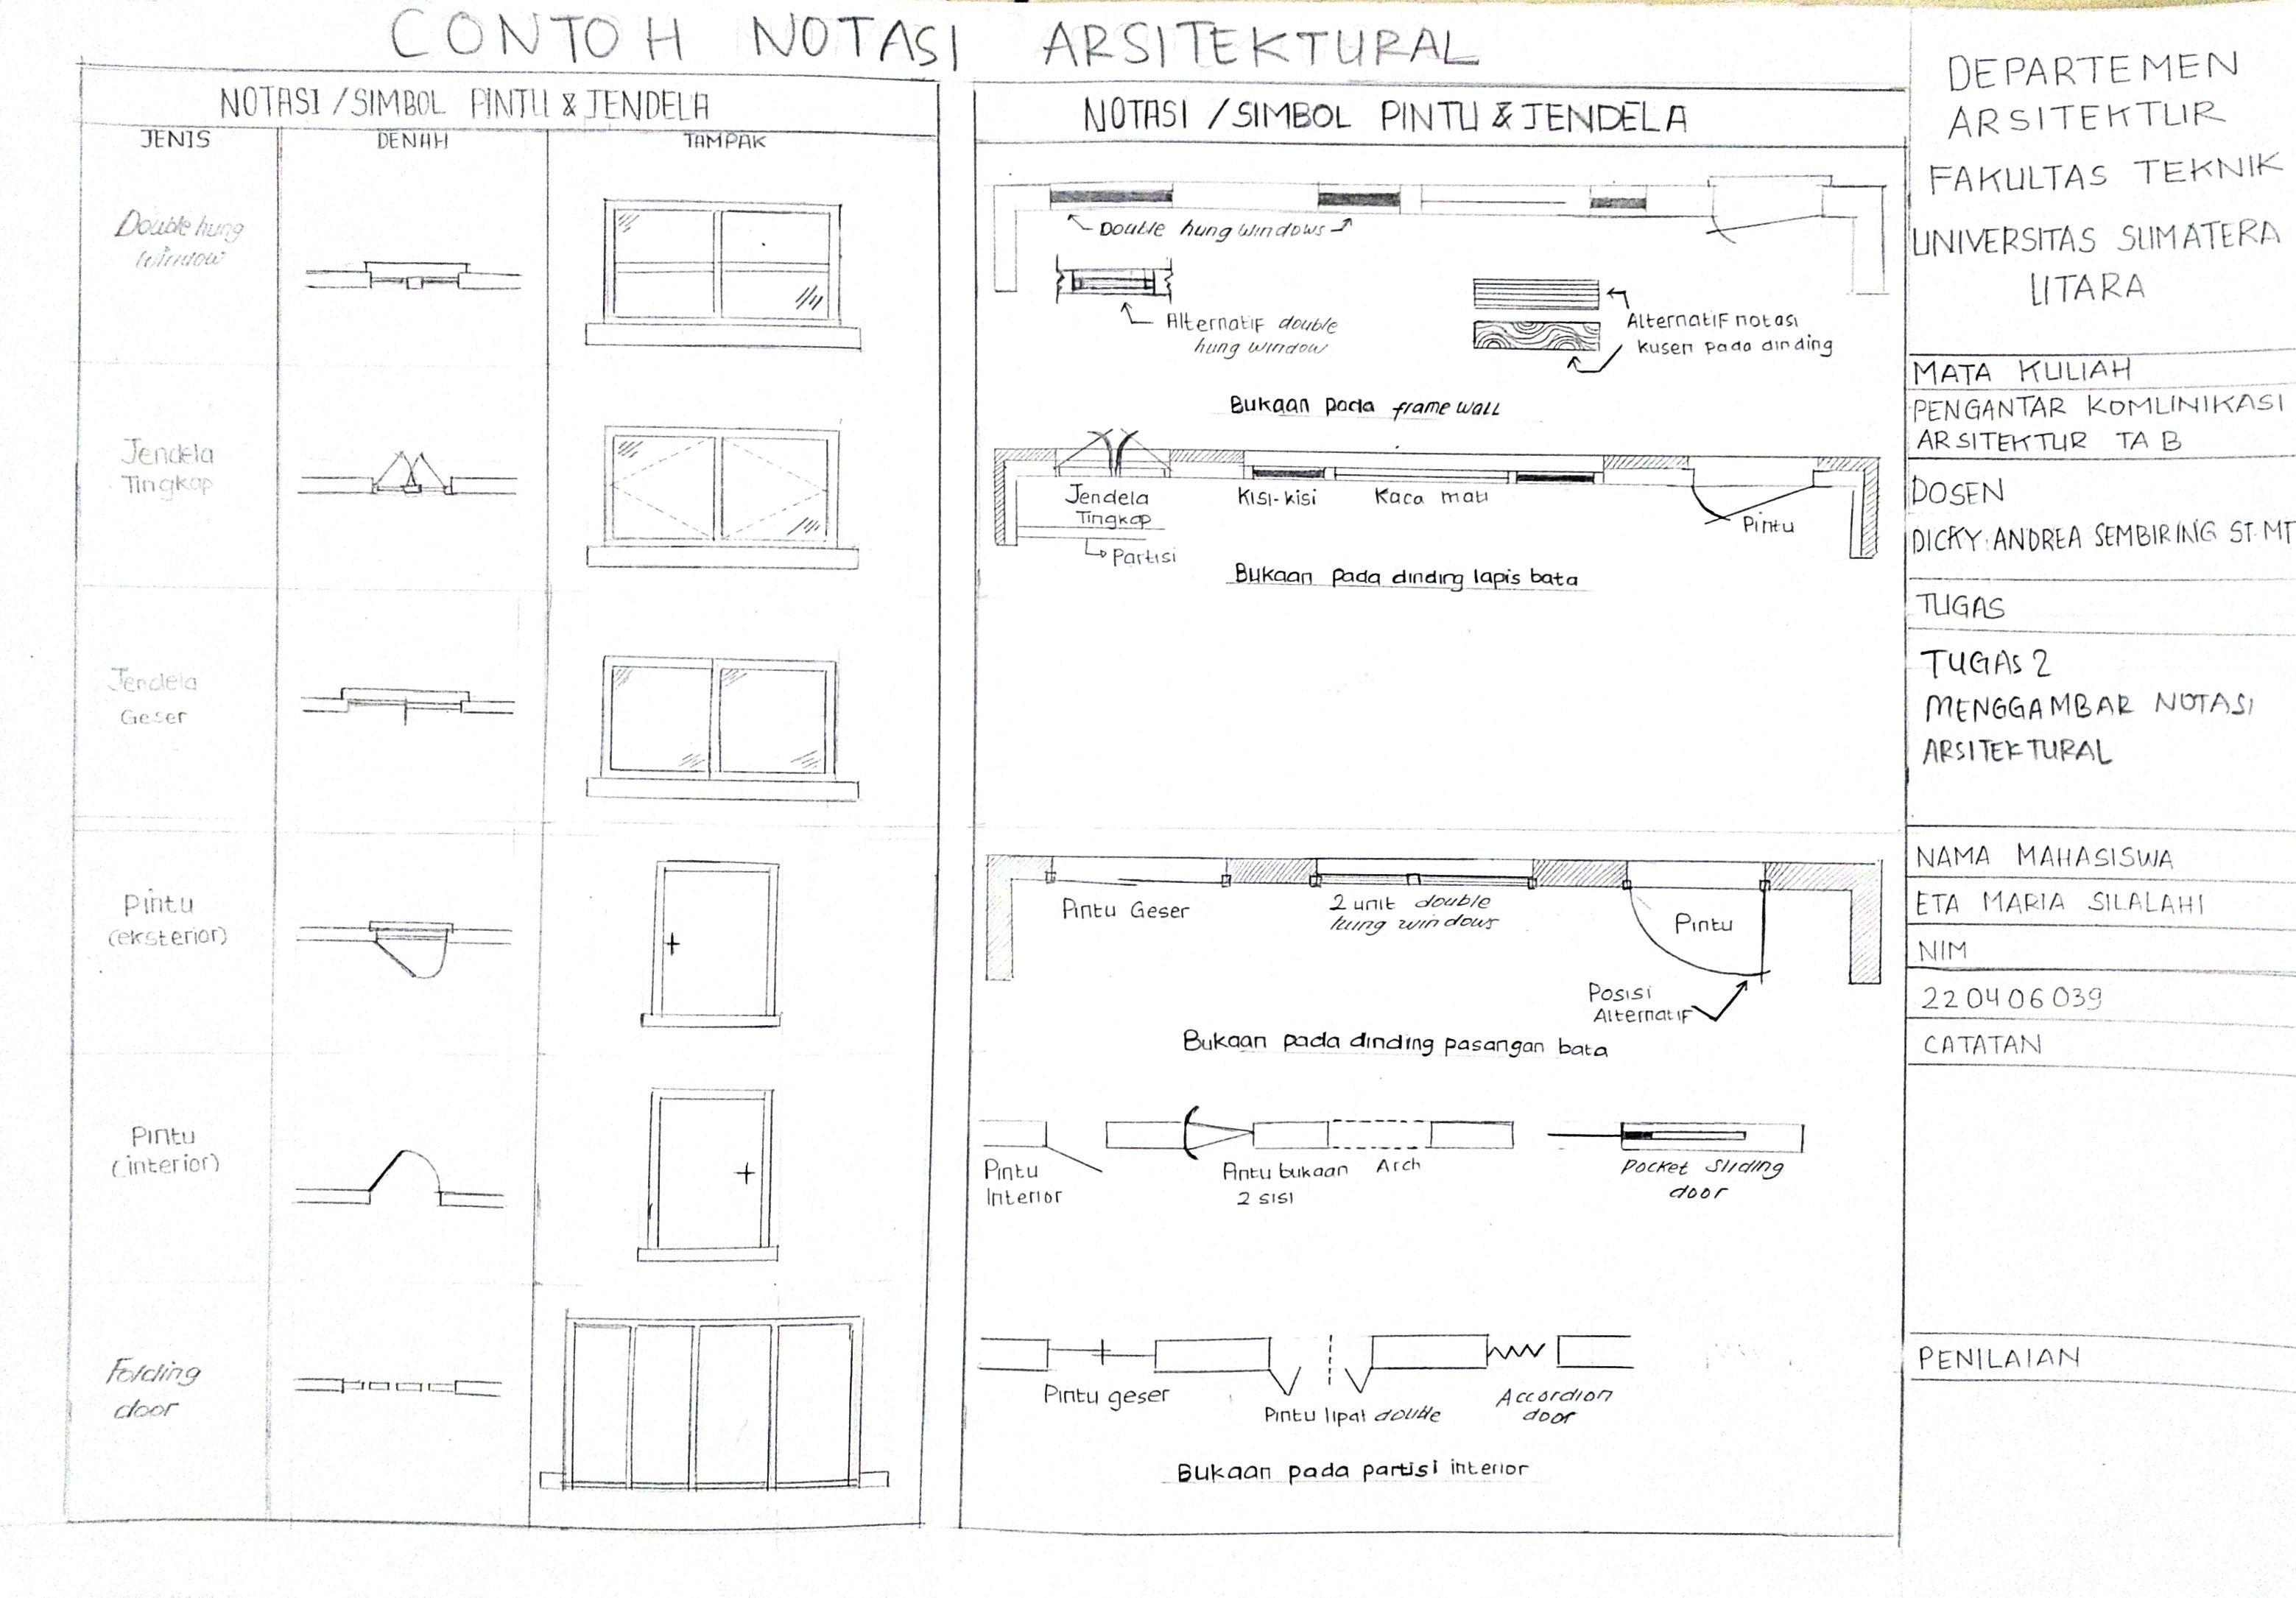 CONTOH NOTASI ARSITEKTURAL
NOTASI / SIMBOL PINTU & JENDELA
JENIS
DENAH
TAMPAK
Double hung
window
Jendela
Tingkap
Jendela
Geser
Pintu
(eksterior)
Pintu
(interior)
Folding
door
NOTASI / SIMBOL PINTU & JENDELA
Double hung windows
Alternatif double
hung window
Alternatif notasi
kusen pada dinding
Bukaan pada frame wall
Jendela
Tingkap
Kisi-kisi
Kaca mati
Pintu
Partisi
Bukaan pada dinding lapis bata
Pintu Geser
2 unit double
hung windows
Pintu
Posisi
Alternatif
Bukaan pada dinding pasangan bata
Pintu
Interior
Pintu bukaan
2 sisi
Arch
Pocket Sliding
door
Pintu geser
Pintu lipat double
Accordion
door
Bukaan pada partisi interior
DEPARTEMEN
ARSITEKTUR
FAKULTAS TEKNIK
UNIVERSITAS SUMATERA
UTARA
MATA KULIAH
PENGANTAR KOMUNIKASI
ARSITEKTUR TA B
DOSEN
DICKY ANDREA SEMBIRING ST. MT
TUGAS
TUGAS 2
MENGGAMBAR NOTASI
ARSITEKTURAL
NAMA MAHASISWA
ETA MARIA SILALAHI
NIM
220406039
CATATAN
PENILAIAN